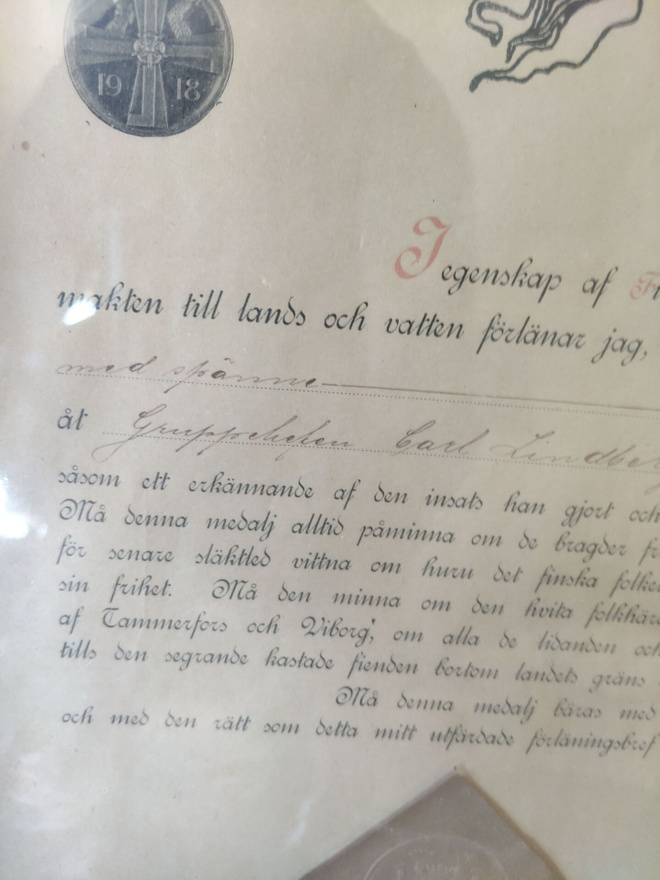 19 18
I egenskap af
makten till lands och vatten förlänar jag,
med spänne
åt Gruppchefen Carl Lindberg
såsom ett erkännande af den insats han gjort och
Må denna medalj alltid påminna om de bragder
för senare släktled vittna om huru det finska
sin frihet. Må den minna om den hvita
af Tammerfors och Viborg, om alla de lidanden
tills den segrande kastade fienden bortom landets gräns
Må denna medalj bäras med
och med den rätt som detta mitt utfärdade förläningsbref